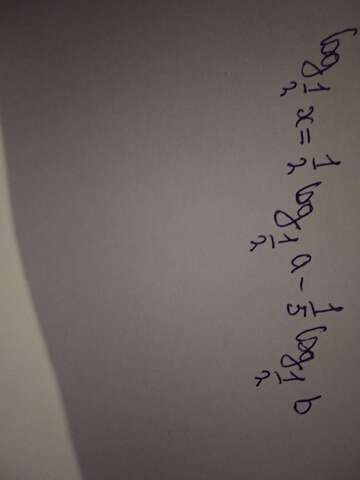 log_{1/2} x = 1/2 log_{1/2} a - 1/5 log_{1/2} b